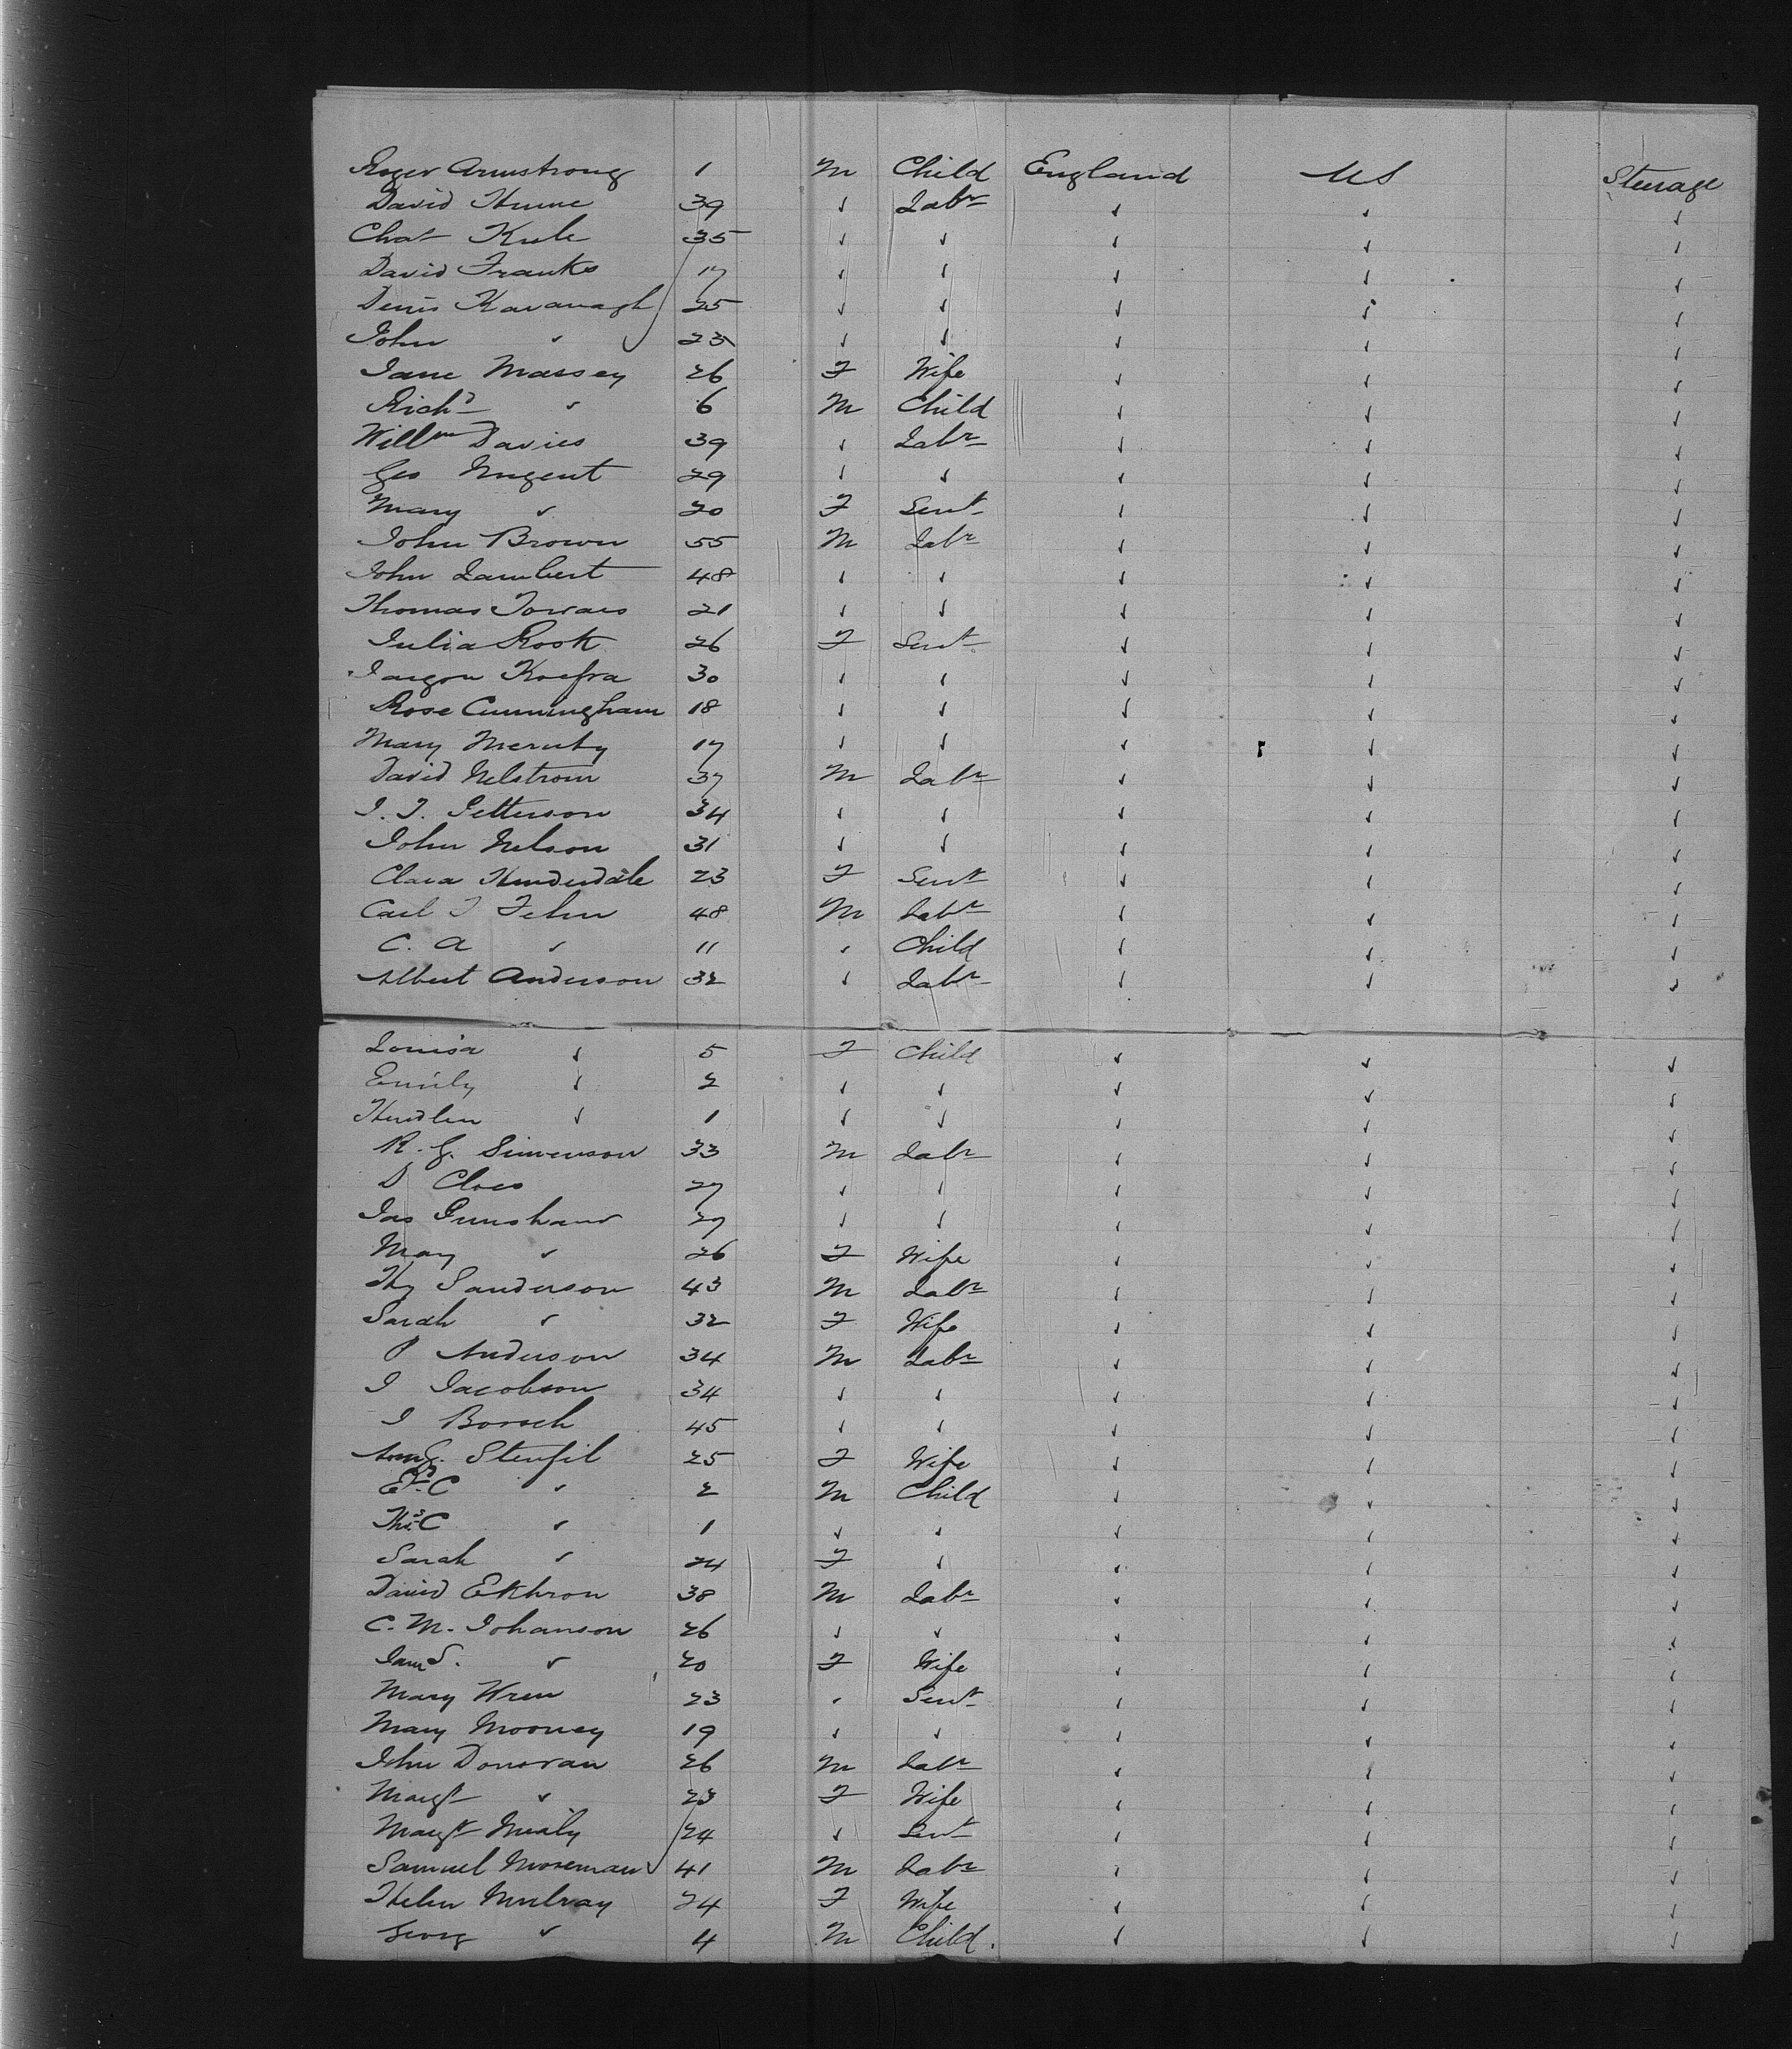 Roger Armstrong 1 M Child England US Steerage
David Hume 39 ✓ Labr ✓ ✓ ✓
Chas Kule 35 ✓ ✓ ✓ ✓ ✓
David Franks 17 ✓ ✓ ✓ ✓ ✓
Denis Kavanagh 25 ✓ ✓ ✓ ✓ ✓
John ✓ 23 ✓ ✓ ✓ ✓ ✓
Jane Massey 26 F Wife ✓ ✓ ✓
Richd ✓ 6 M Child ✓ ✓ ✓
Willm Davies 39 ✓ Labr ✓ ✓ ✓
Geo Nugent 29 ✓ ✓ ✓ ✓ ✓
Mary ✓ 20 F Servt ✓ ✓ ✓
John Brown 55 M Labr ✓ ✓ ✓
John Lambert 48 ✓ ✓ ✓ ✓ ✓
Thomas 21 ✓ ✓ ✓ ✓ ✓
Julia Rook 26 F Servt ✓ ✓ ✓
30 ✓ ✓ ✓ ✓ ✓
Rose Cunningham 18 ✓ ✓ ✓ ✓ ✓
Mary 17 ✓ ✓ ✓ ✓ ✓
David Nelstrom 37 M Labr ✓ ✓ ✓
J. J. Petterson 34 ✓ ✓ ✓ ✓ ✓
John Nelson 31 ✓ ✓ ✓ ✓ ✓
Clara 23 F Servt ✓ ✓ ✓
Carl J Fehn 48 M Labr ✓ ✓ ✓
C. A ✓ 11 ✓ Child ✓ ✓ ✓
Albert Anderson 32 ✓ Labr ✓ ✓ ✓
Louisa ✓ 5 F Child ✓ ✓ ✓
Emily ✓ 2 ✓ ✓ ✓ ✓ ✓
✓ 1 ✓ ✓ ✓ ✓ ✓
R. G. Simenson 33 M Labr ✓ ✓ ✓
D Cloes 27 ✓ ✓ ✓ ✓ ✓
Jas Gunshaw 29 ✓ ✓ ✓ ✓ ✓
May ✓ 26 F Wife ✓ ✓ ✓
Hy Sanderson 43 M Labr ✓ ✓ ✓
Sarah ✓ 32 F Wife ✓ ✓ ✓
P Anderson 34 M Labr ✓ ✓ ✓
J Jacobson 34 ✓ ✓ ✓ ✓ ✓
J Borsch 45 ✓ ✓ ✓ ✓ ✓
Stenfil 25 F Wife ✓ ✓ ✓
Ed. C ✓ 2 M Child ✓ ✓ ✓
Ths. C ✓ 1 ✓ ✓ ✓ ✓ ✓
Sarah ✓ 24 F ✓ ✓ ✓ ✓
David Ekhron 38 M Labr ✓ ✓ ✓
C. M. Johanson 26 ✓ ✓ ✓ ✓ ✓
S. ✓ 20 F Wife ✓ ✓ ✓
Mary Wren 23 ✓ Servt ✓ ✓ ✓
Mary Mooney 19 ✓ ✓ ✓ ✓ ✓
John Donovan 26 M Labr ✓ ✓ ✓
Margt ✓ 23 F Wife ✓ ✓ ✓
Margt Nealy 24 ✓ Servt ✓ ✓ ✓
Samuel Moreman 41 M Labr ✓ ✓ ✓
Helen Mulvay 24 F Wife ✓ ✓ ✓
Georg ✓ 4 M Child. ✓ ✓ ✓